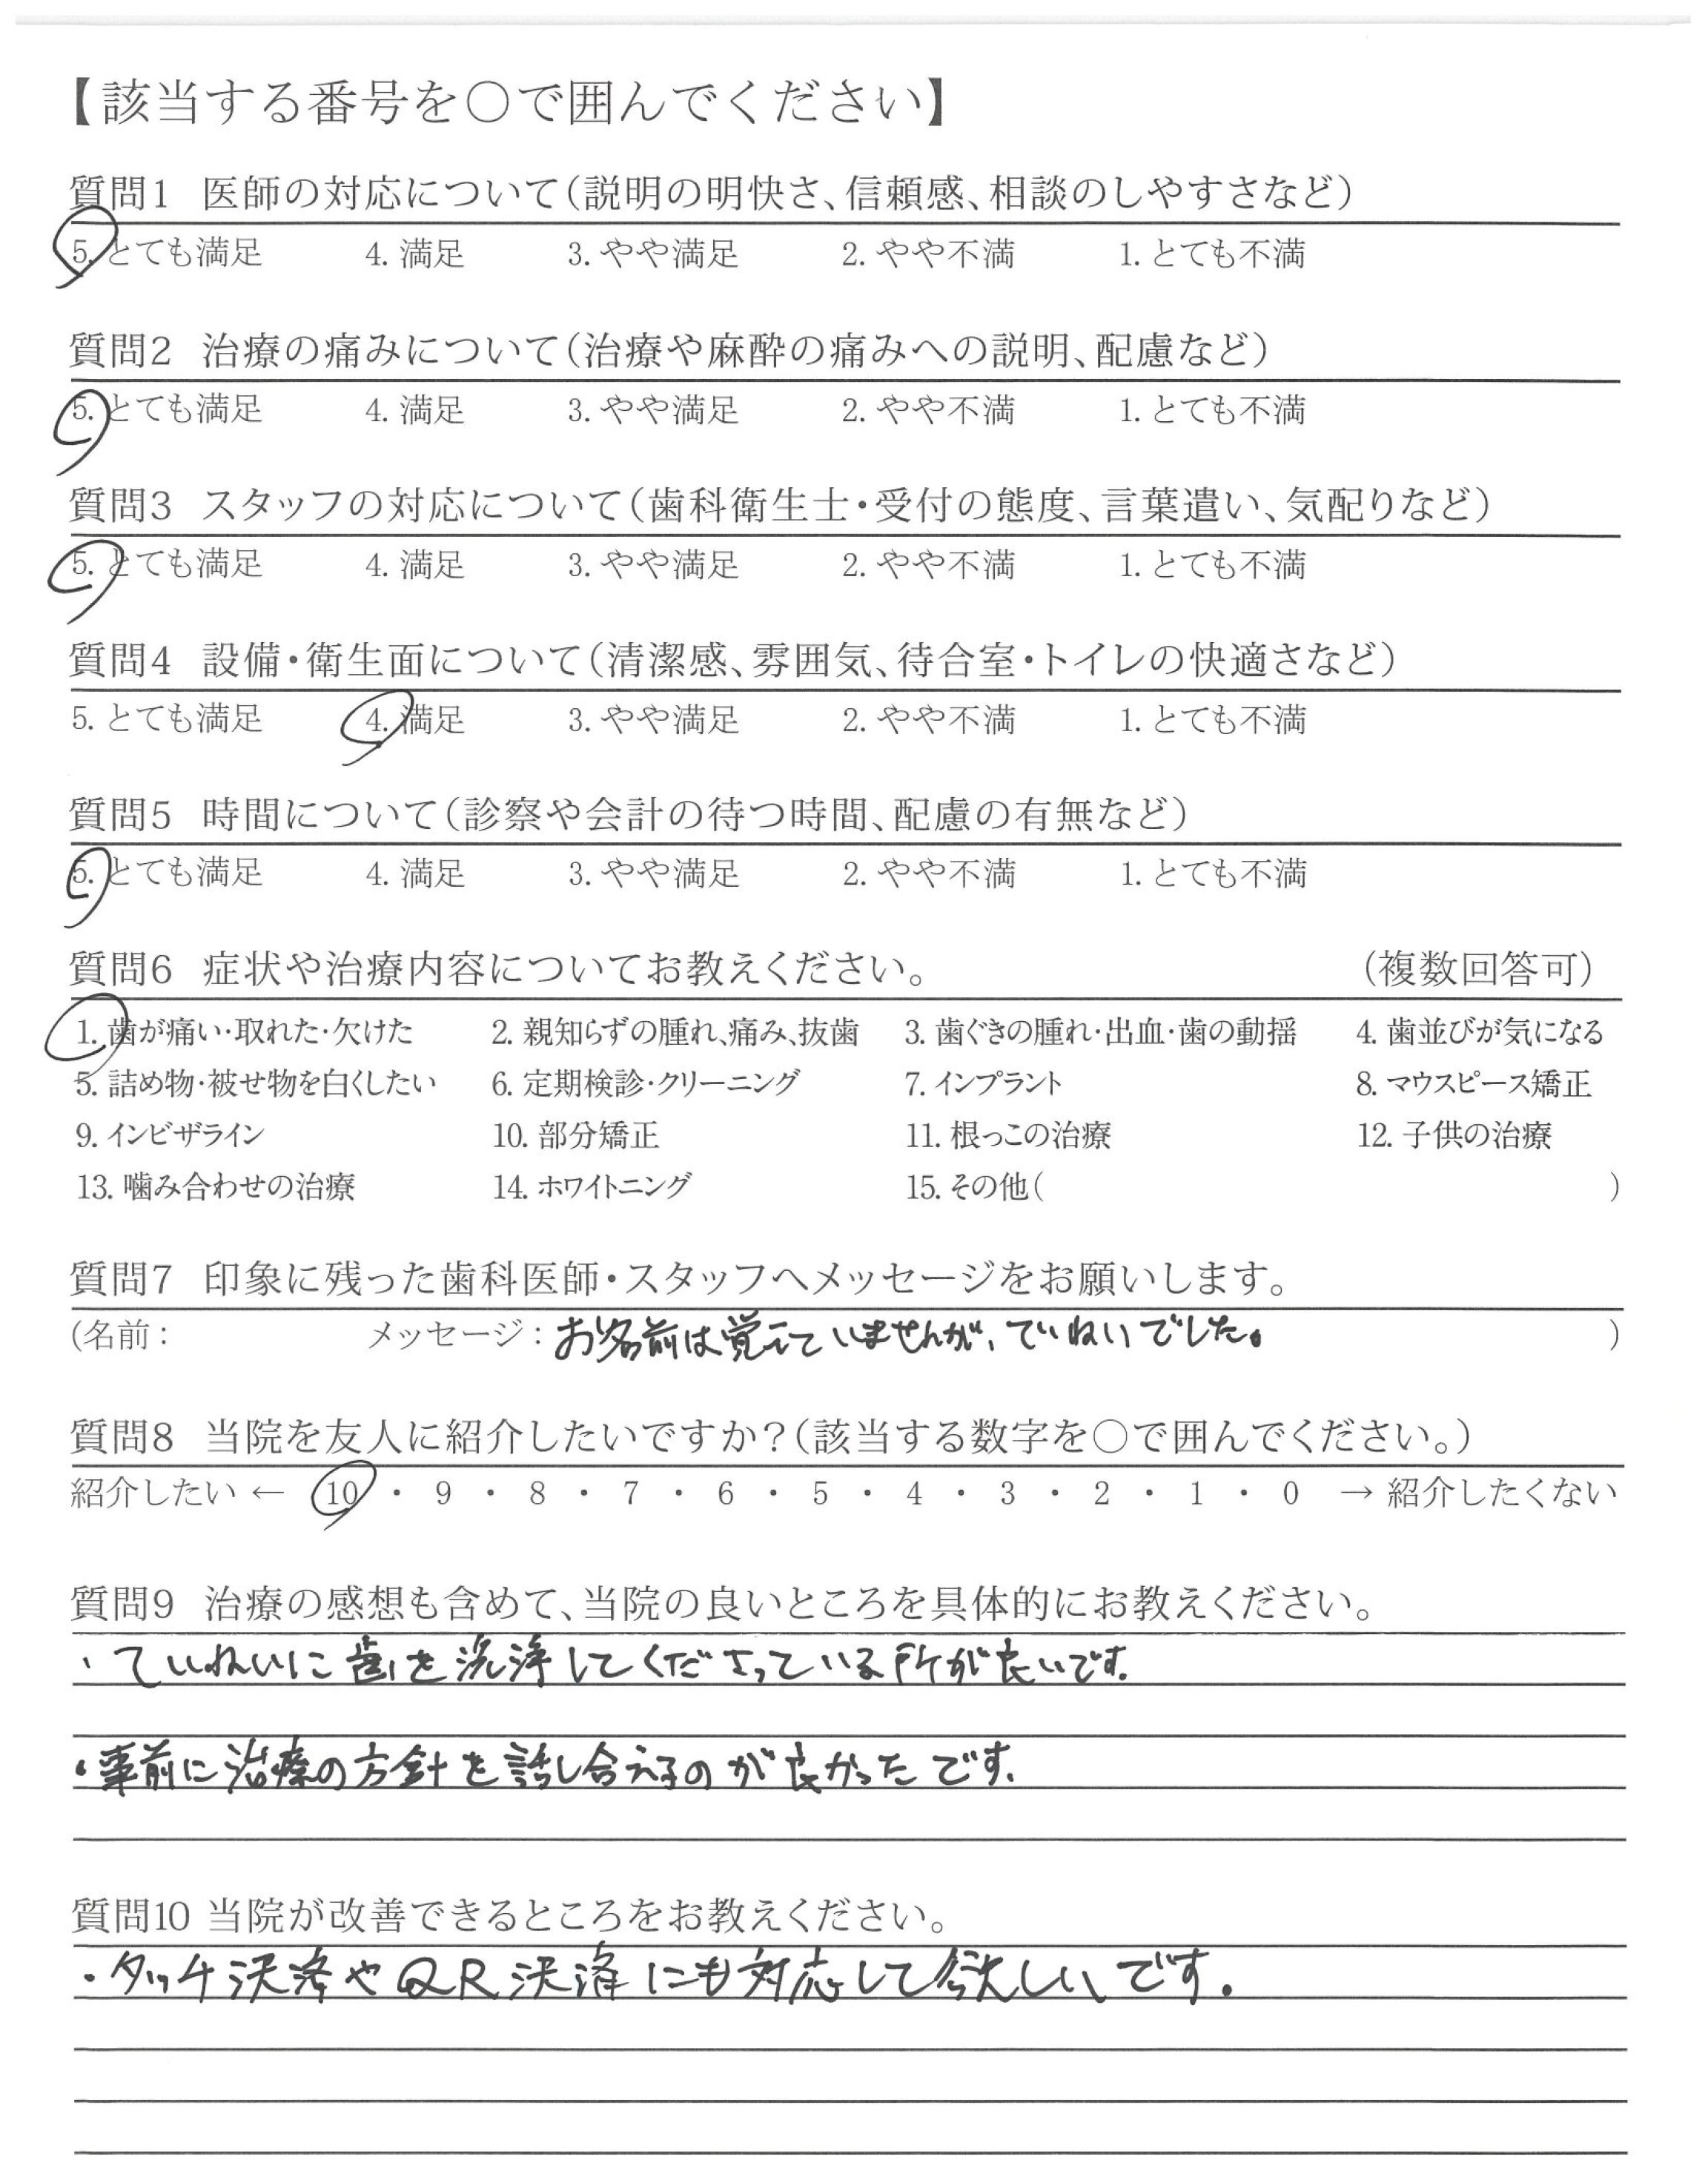 【該当する番号を○で囲んでください】
質問1 医師の対応について(説明の明快さ、信頼感、相談のしやすさなど)
5. とても満足 4. 満足 3. やや満足 2. やや不満 1. とても不満
質問2 治療の痛みについて(治療や麻酔の痛みへの説明、配慮など)
5. とても満足 4. 満足 3. やや満足 2. やや不満 1. とても不満
質問3 スタッフの対応について(歯科衛生士・受付の態度、言葉遣い、気配りなど)
5. とても満足 4. 満足 3. やや満足 2. やや不満 1. とても不満
質問4 設備・衛生面について(清潔感、雰囲気、待合室・トイレの快適さなど)
5. とても満足 4. 満足 3. やや満足 2. やや不満 1. とても不満
質問5 時間について(診察や会計の待つ時間、配慮の有無など)
5. とても満足 4. 満足 3. やや満足 2. やや不満 1. とても不満
質問6 症状や治療内容についてお教えください。 (複数回答可)
1. 歯が痛い・取れた・欠けた 2. 親知らずの腫れ、痛み、抜歯 3. 歯ぐきの腫れ・出血・歯の動揺 4. 歯並びが気になる
5. 詰め物・被せ物を白くしたい 6. 定期検診・クリーニング 7. インプラント 8. マウスピース矯正
9. インビザライン 10. 部分矯正 11. 根っこの治療 12. 子供の治療
13. 噛み合わせの治療 14. ホワイトニング 15. その他( )
質問7 印象に残った歯科医師・スタッフへメッセージをお願いします。
(名前: メッセージ: お名前は覚えていませんが、ていねいでした。 )
質問8 当院を友人に紹介したいですか?(該当する数字を○で囲んでください。)
紹介したい ← 10 ・ 9 ・ 8 ・ 7 ・ 6 ・ 5 ・ 4 ・ 3 ・ 2 ・ 1 ・ 0 → 紹介したくない
質問9 治療の感想も含めて、当院の良いところを具体的にお教えください。
・ていねいに歯を洗浄してくださっている所が良いです。
・事前に治療の方針を話し合えるのが良かったです。
質問10 当院が改善できるところをお教えください。
・タッチ決済やQR決済にも対応して欲しいです。